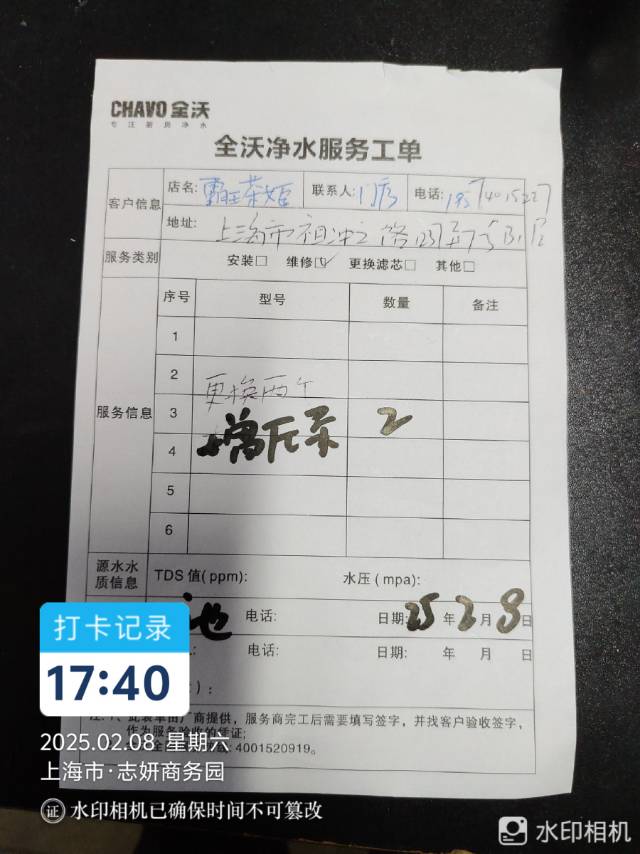 CHAVO 全沃
专注厨房净水
全沃净水服务工单
客户信息 店名: 霸王茶姬 联系人: 门店 电话:
地址: 上海市祖冲之路
服务类别 安装□ 维修☑ 更换滤芯□ 其他□
服务信息 序号 型号 数量 备注
1
2
更换两个
3 2
增压泵
4
5
6
源水水质信息 TDS 值(ppm): 水压(mpa):
电话: 日期: 25 年 2 月 8 日
电话: 日期: 年 月 日
) :
注: 1、此表单由厂商提供，服务商完工后需要填写签字，并找客户验收签字，
作为服务验收的凭证;
4001520919。
打卡记录
17:40
2025.02.08 星期六
上海市·志妍商务园
证 水印相机已确保时间不可篡改
水印相机